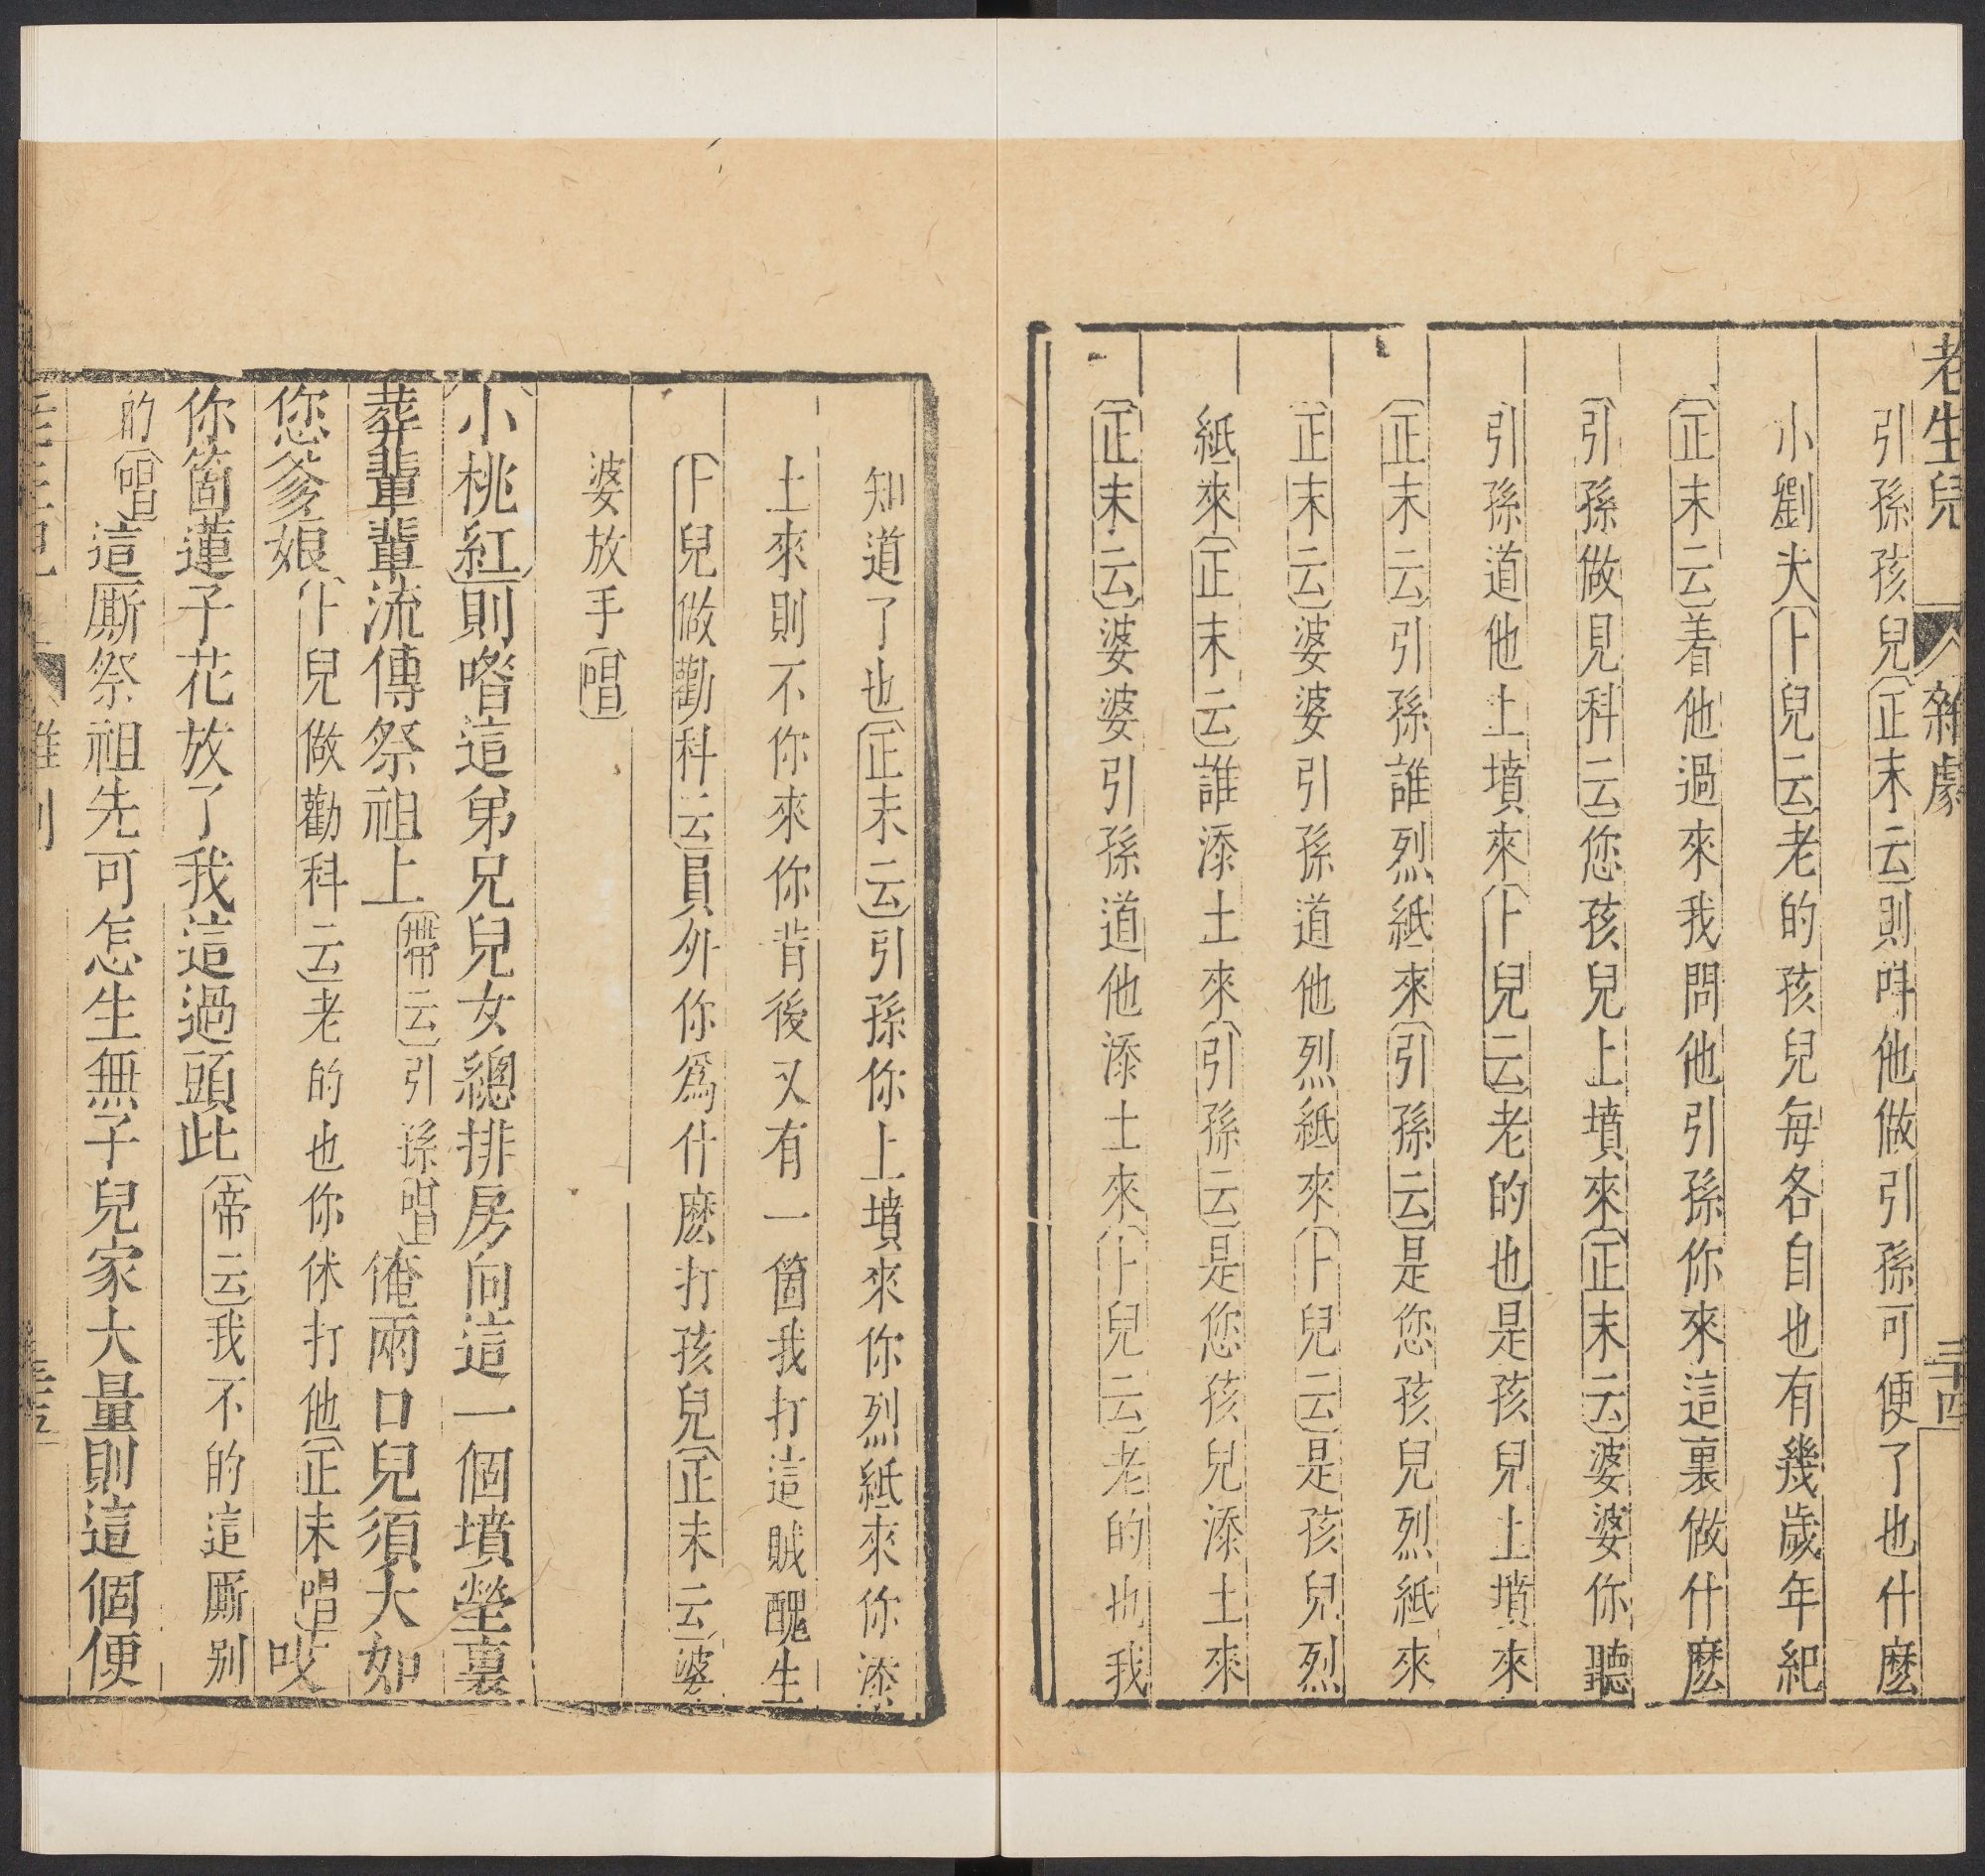 老生兒 雜劇 三十四
引孫孩兒〔正末云〕則呌他做引孫可便了也什麽
小劉大〔卜兒云〕老的孩兒每各自也有幾歲年紀
〔正末云〕着他過來我問他引孫你來這裏做什麽
〔引孫做見科云〕您孩兒上墳來〔正末云〕婆婆你聽
引孫道他上墳來〔卜兒云〕老的也是孩兒上墳來
〔正末云〕引孫誰烈紙來〔引孫云〕是您孩兒烈紙來
〔正末云〕婆婆引孫道他烈紙來〔卜兒云〕是孩兒烈
紙來〔正末云〕誰添土來〔引孫云〕是您孩兒添土來
〔正末云〕婆婆引孫道他添土來〔卜兒云〕老的也我
知道了也〔正末云〕引孫你上墳來你烈紙來你添
土來則不你來你背後又有一箇我打這賊醜生
〔卜兒做勸科云〕員外你爲什麽打孩兒〔正末云〕婆
婆放手〔唱〕
〔小桃紅〕則喒這弟兄兒女總排房向這一個墳塋裏
葬輩輩流傳祭祖上〔帶云〕引孫〔唱〕俺兩口兒須大如
您爹娘〔卜兒做勸科云〕老的也你休打他〔正末唱〕哎
你箇蓮子花放了我這過頭此〔帶云〕我不的這厮别
的〔唱〕這厮祭祖先可怎生無子兒家大量則這個便